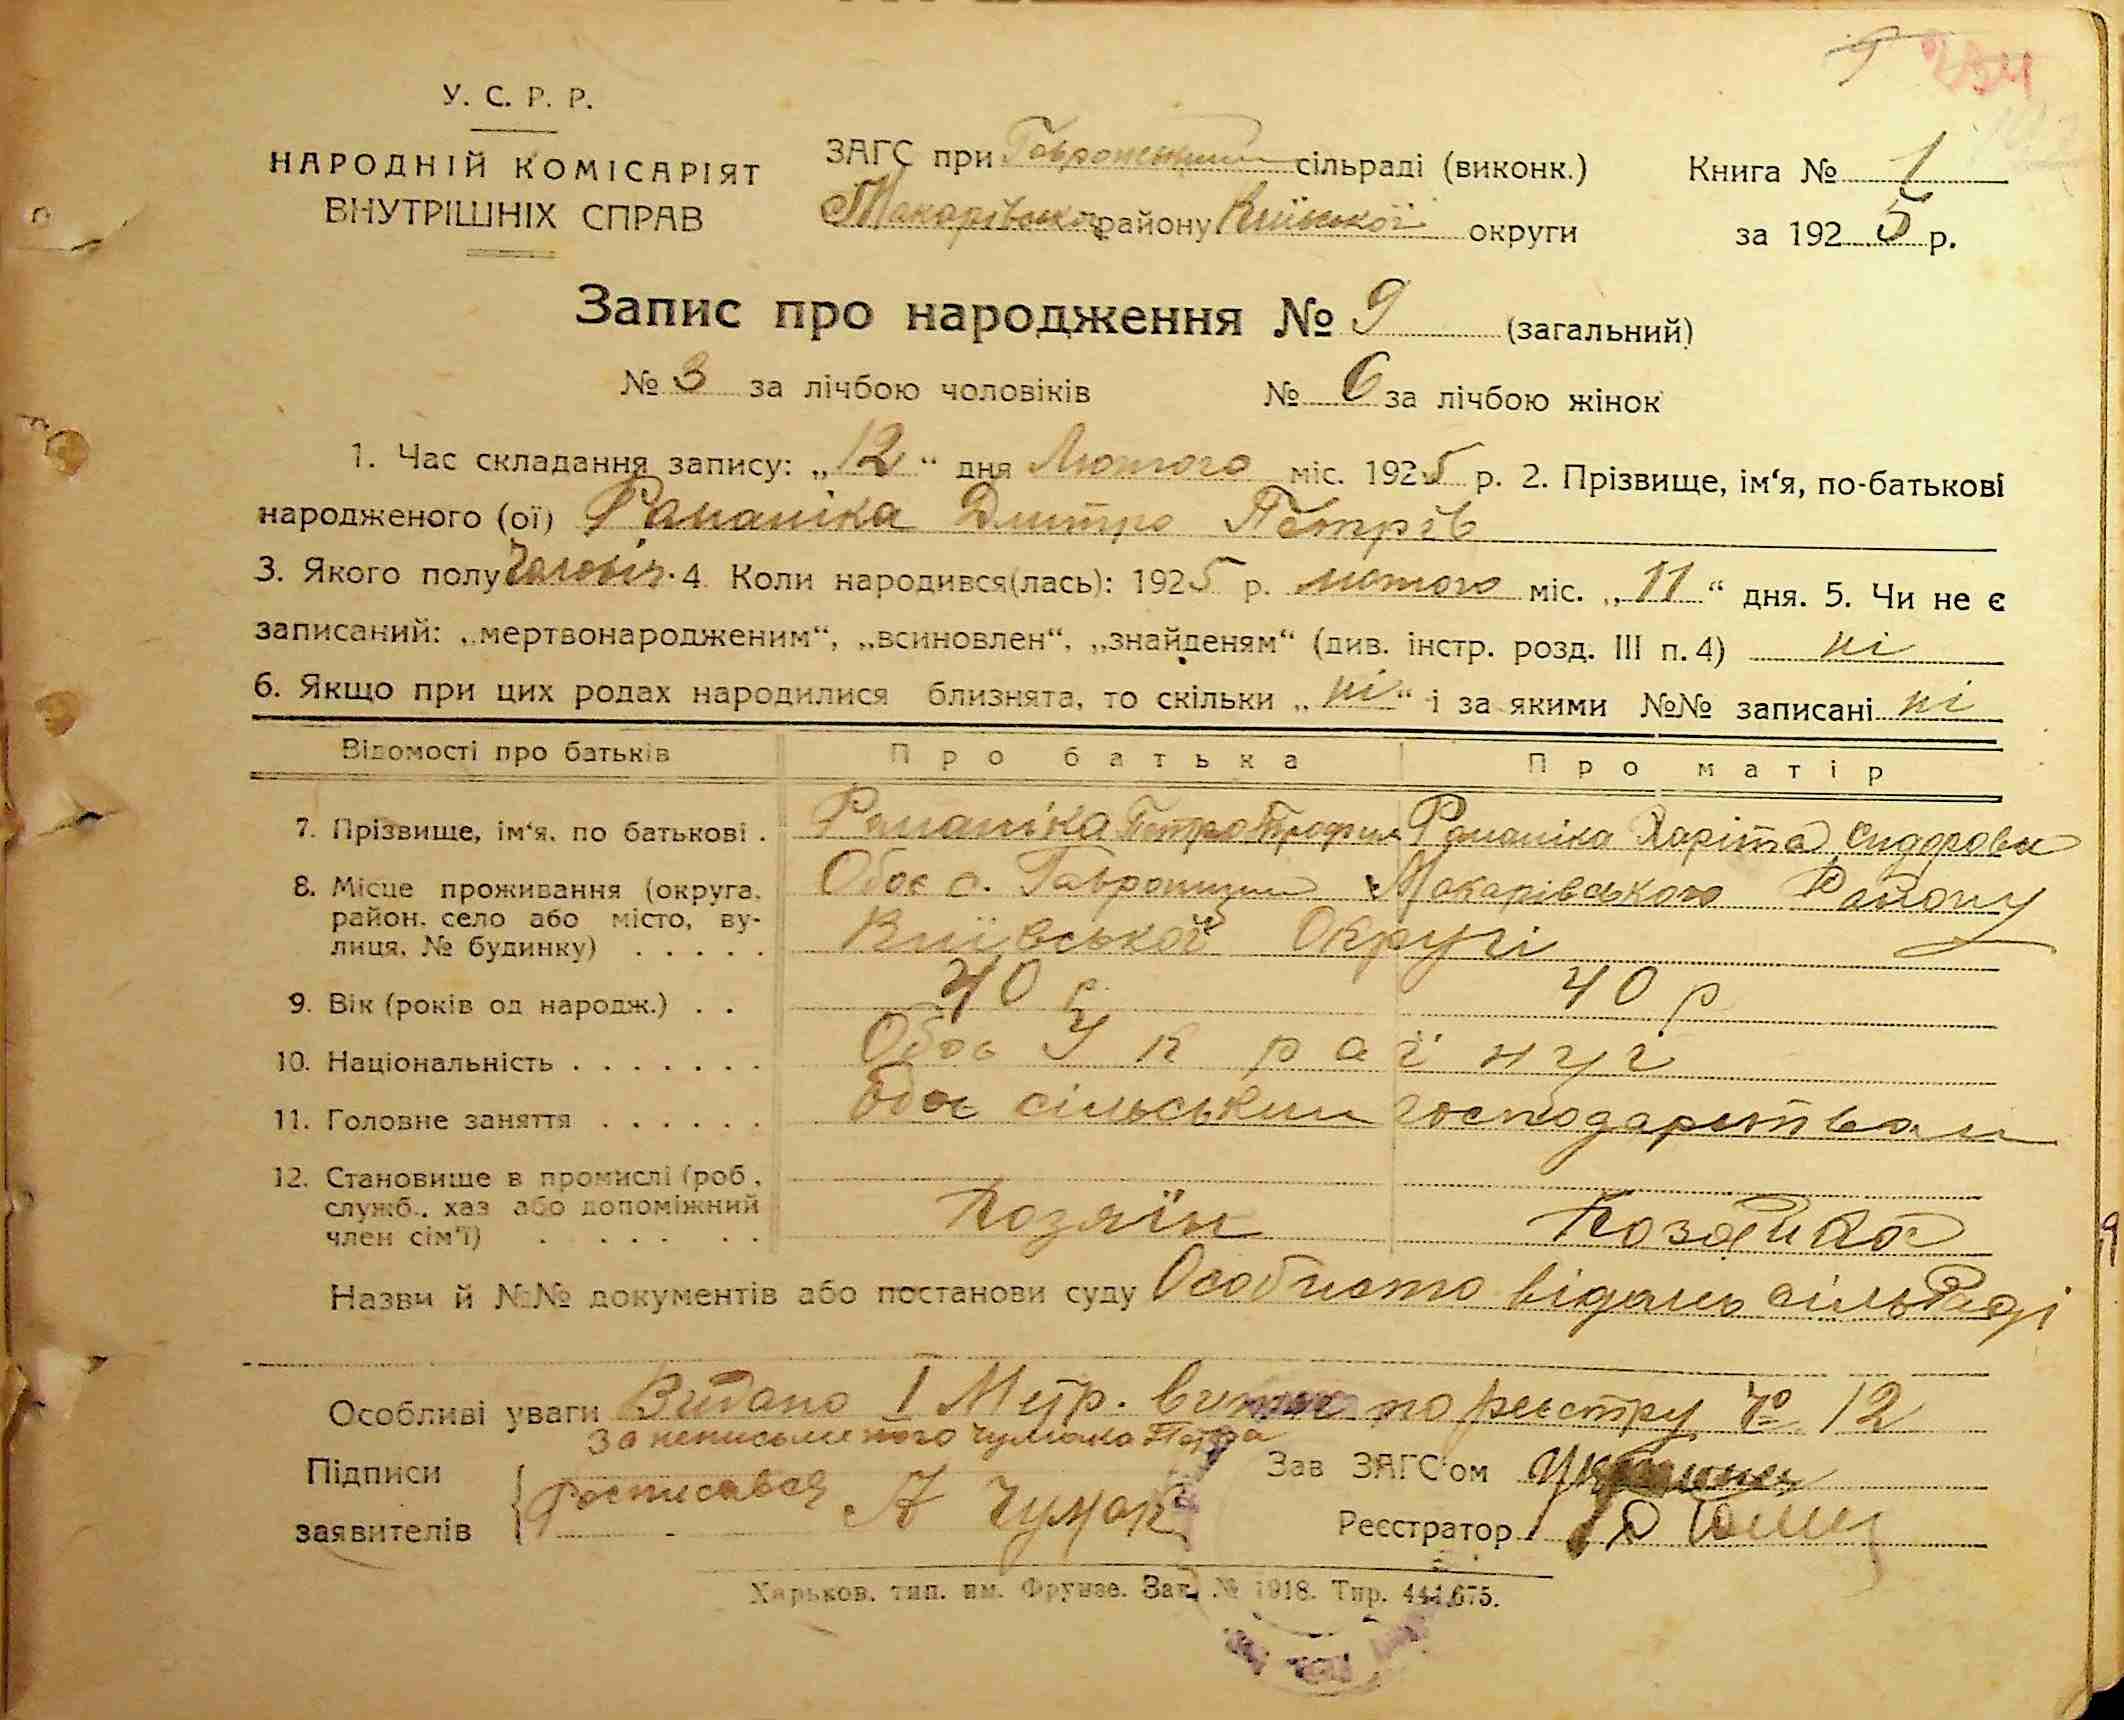 У. С. Р. Р.
НАРОДНІЙ КОМІСАРІЯТ
ВНУТРІШНІХ СПРАВ
ЗАГС при Гавронщині сільраді (виконк.)
Макарівського району Київської округи
Книга № 1
за 1925 р.
Запис про народження № 9 (загальний)
№ 3 за лічбою чоловіків № 6 за лічбою жінок
1. Час складання запису: „12“ дня Лютого міс. 1925 р. 2. Прізвище, ім‘я, по-батькові
народженого (ої) Дмитро Петрів
3. Якого полу Чоловіч. 4. Коли народився(лась): 1925 р. лютого міс. „11“ дня. 5. Чи не є
записаний: „мертвонародженим“, „всиновлен“, „знайденям“ (див. інстр. розд. III п. 4) ні
6. Якщо при цих родах народилися близнята, то скільки „ні“ і за якими №№ записані ні
Відомості про батьків Про батька Про матір
7. Прізвище, ім‘я, по батькові . Петро Харіта Сидорова
8. Місце проживання (округа, район, село або місто, вулиця, № будинку) . . . . . Обоє с. Гавронщини Макарівського Району
Київської Округі
9. Вік (років од народж.) . . 40 р. 40 р
10. Національність . . . . . . . Обоє Україн
11. Головне заняття . . . . . . Обоє сільським господарством
12. Становище в промислі (роб., служб., хаз або допоміжний член сім‘ї) . . . . . . Хозяїн Хозяйка
Назви й №№ документів або постанови суду Особисто відомо сільРаді
Особливі уваги Видано I Метр. витяг по реєстру № 12
За неписьменного Чумака Петра
Підписи
заявителів
Росписався А Чумак
Зав ЗАГС‘ом
Реєстратор
Харьков. тип. им. Фрунзе. Зак. № 1918. Тир. 444.675.